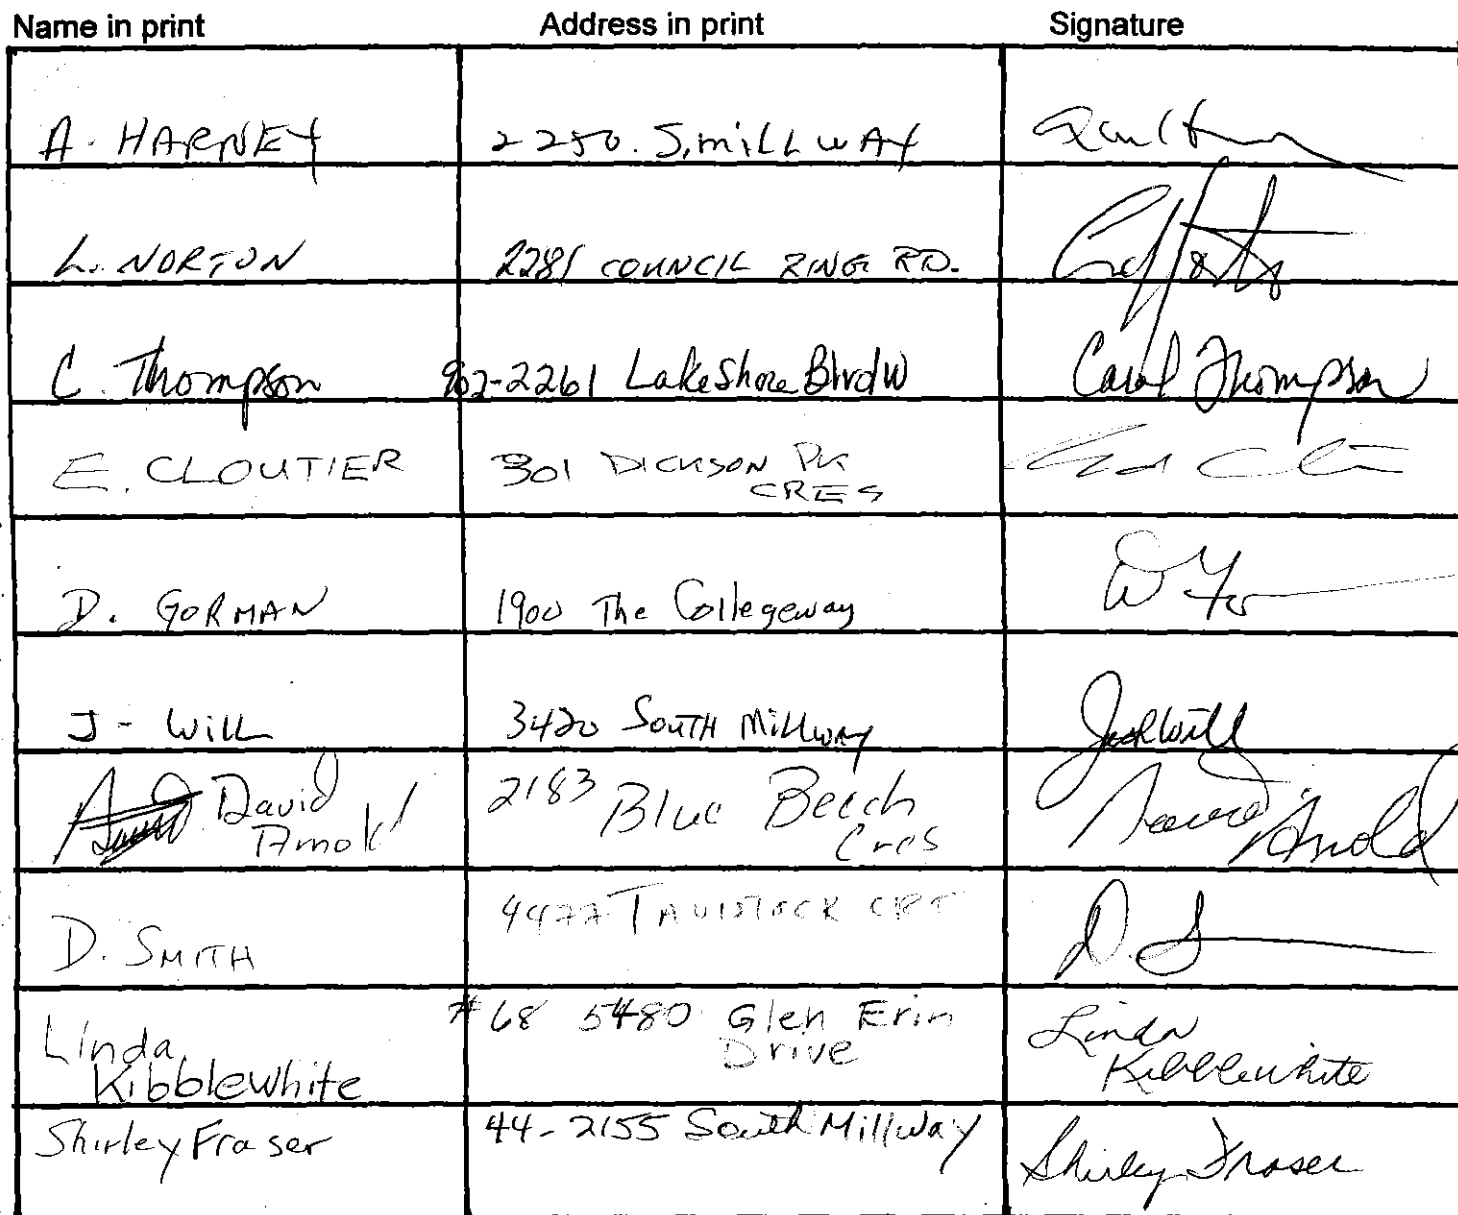 Name in print Address in print Signature
A. HARNEY 2250. S. MILLWAY
L. NORTON 2281 COUNCIL RING RD.
C. Thompson 902-2261 LakeShore Blvd W Carol Thompson
E. CLOUTIER 301 DICKSON PK
CRES
D. GORMAN 1900 The Collegeway
J - Will 3420 South Millway Jack Will
David 2183 Blue Beech David
Arnold Cres Arnold
D. SMITH 4477 TAVISTOCK CRT D. S
Linda #68 5480 Glen Erin Linda
Kibblewhite Drive Kibblewhite
Shirley Fraser 44-2155 South Millway Shirley Fraser